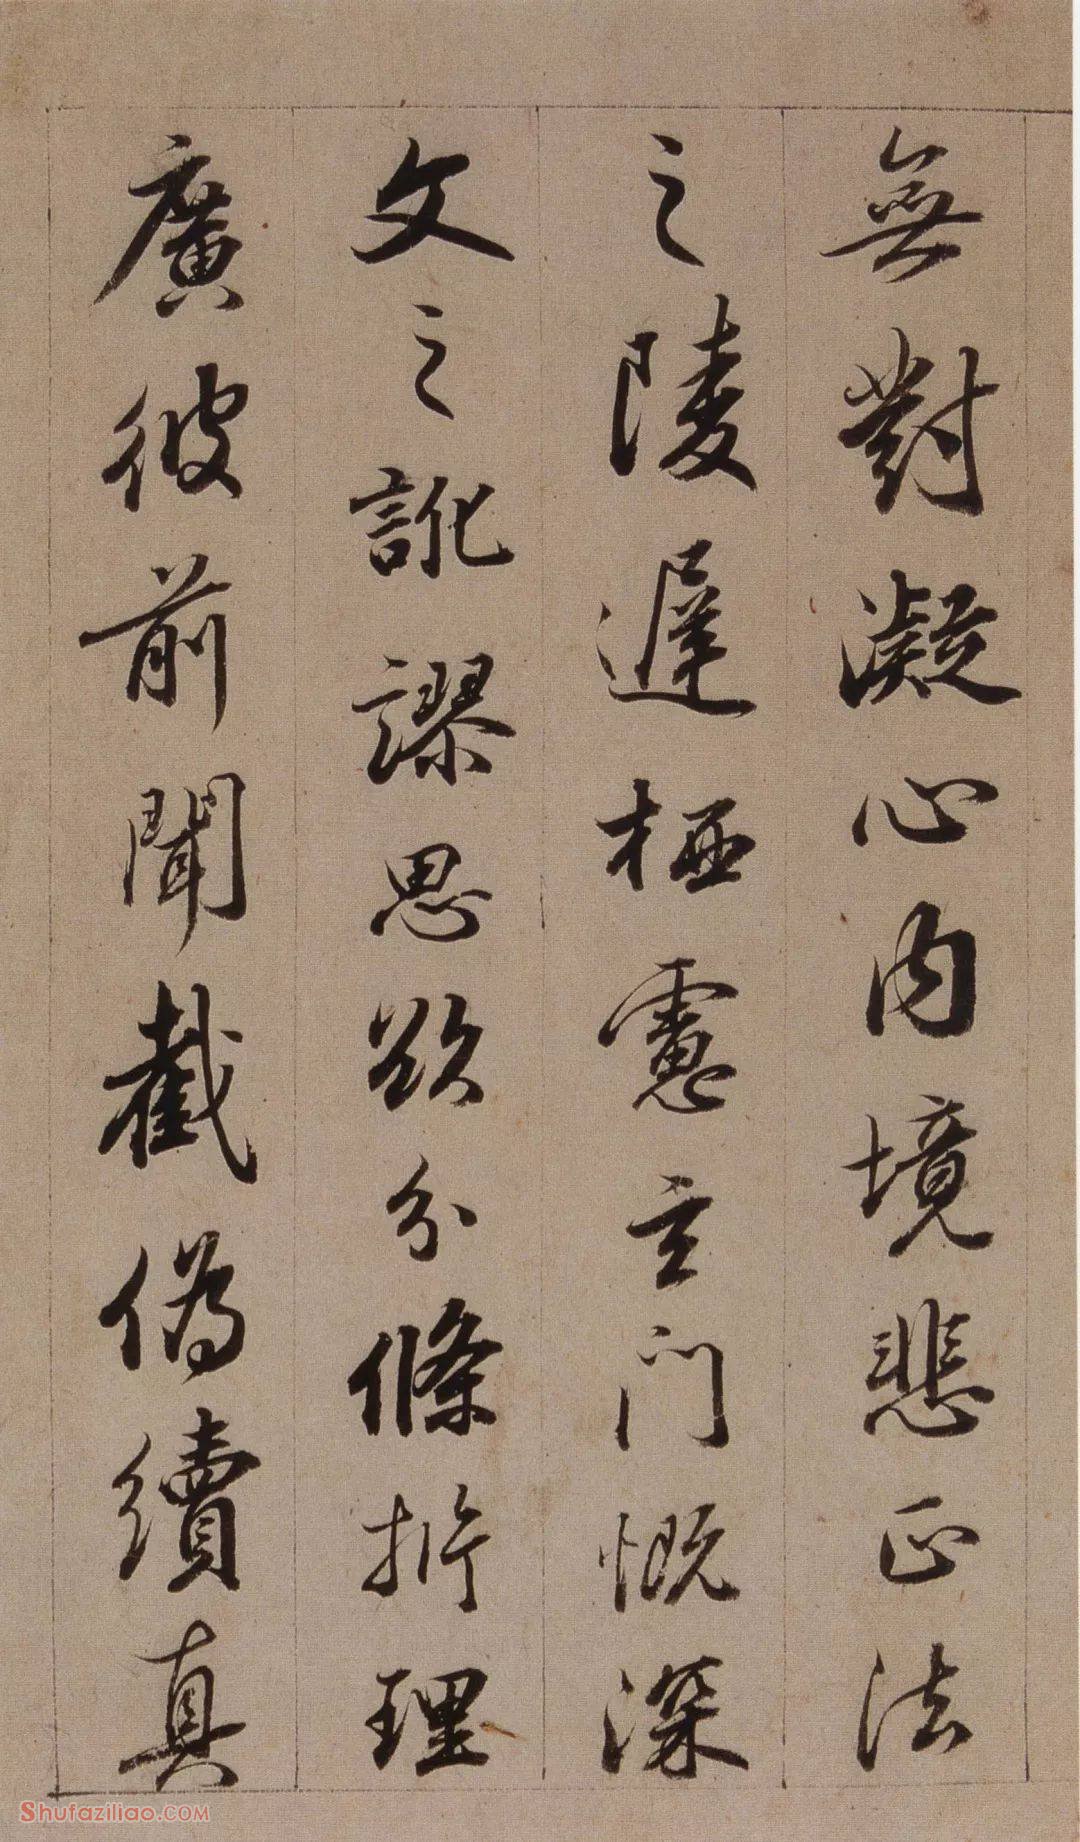 無對凝心内境悲正法
之陵遲栖慮玄門慨深
文之訛謬思欲分條析理
廣彼前聞截偽續真
Shufaziliao.COM